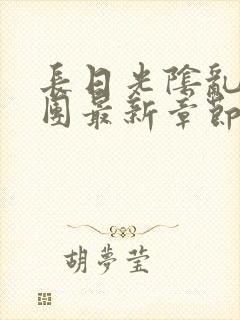 長日光陰亂
團最新章節
胡夢莹